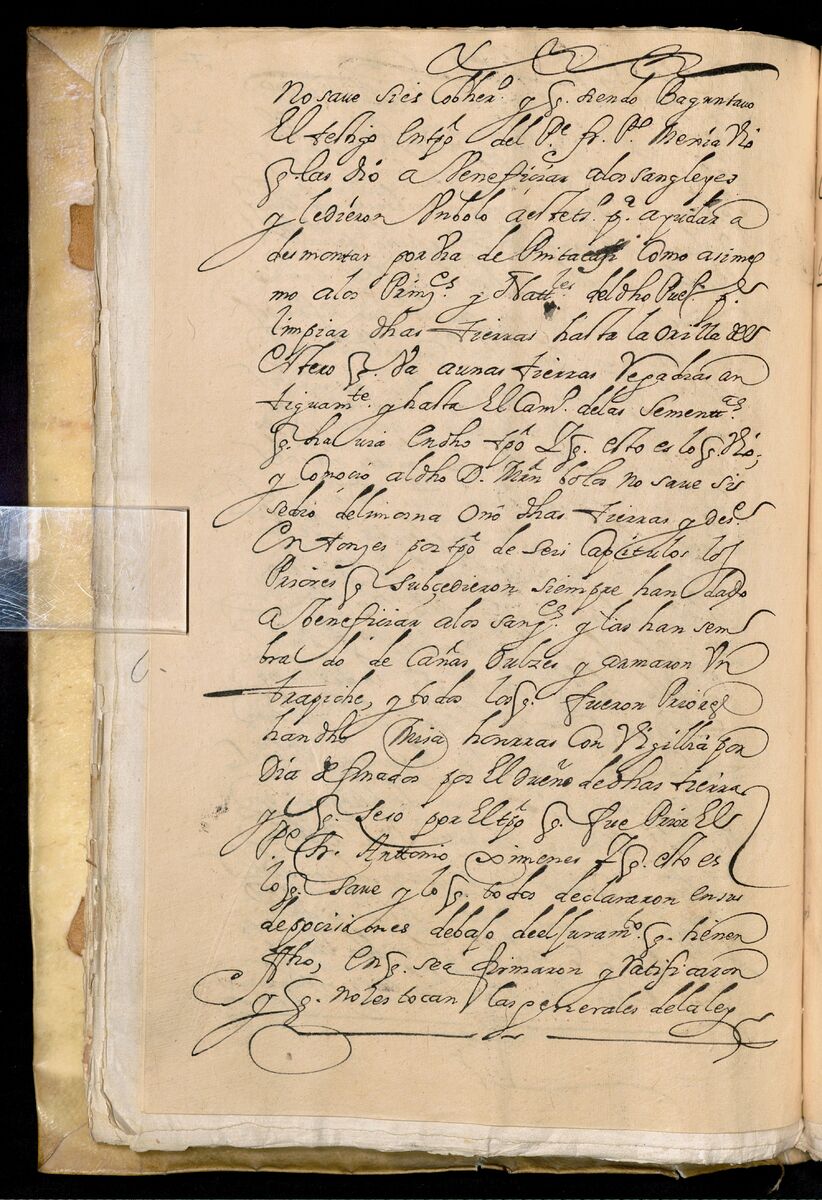 No save si es Cobher.º y q̃. siendo Baguntauo
El testigo en tpõ del P.e fr. P.º Mexia Vió
q̃. las dió a beneficiar a los sangleyes
y le dieron Un bolo a este t.º p.a ayudar a
desmontar por Via de Como asimes
mo a los Prin.es y Natt.les del dho Pueº. p.a
limpiar dhas tierras hasta la orilla del
Estero q̃. Va a unas tierras Vegadras an
tiguam.te y hasta El Cam.º de las Sement.as
q̃. havia en dho tpõ Y q̃. esto es lo q̃. Vió,
y Conoció al dho D. Mrn bolos no save si
se dió de limosna O no dhas tierras y des.e
Entonzes por tpõ de seis Capitulos los
Priores q̃. subçedieron siempre han dado
a beneficiar a los sang.es y las han sem
bra do de Cañas Dulzes y armaron Un
trapiche, y todos los q̃. fueron Priores
han dho Misa honrras Con Vigillia por
Dia de finados por El Dueño de dhas tierras
y q̃. seso por El tpõ q̃. fue Prior El
P.e Fr. Anttonio Ximenes Y q̃. esto es
lo q̃. save y lo q̃. todos declararon en sus
deposiciones debajo de el Juram.to q̃. tienen
ffho, en q̃. se afirmaron y Ratificaron
y q̃. no les tocan las generales de la ley